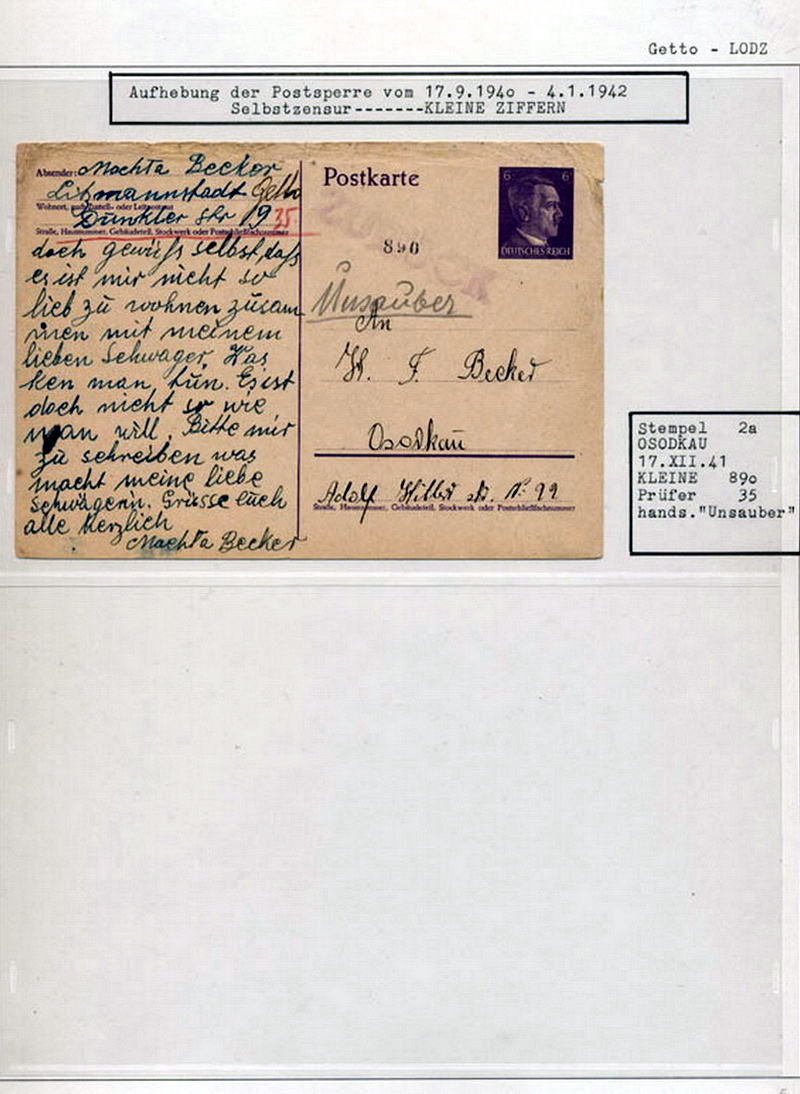 Getto - LODZ
Aufhebung der Postsperre vom 17.9.194o - 4.1.1942
Selbstzensur-------KLEINE ZIFFERN
Absender: Machta Becker
Litzmannstadt Getto
Wohnort, auch Zustell- oder Leitpostamt
Dunkler str 19 35
Straße, Hausnummer, Gebäudeteil, Stockwerk oder Postschließfachnummer
doch gewüss selbst, dass
es ist mir nicht so
lieb zu wohnen zusam
men mit meinem
lieben Schwager. Was
ken man tun. Es ist
doch nicht so wie
man will. Bitte mir
zu schreiben was
macht meine liebe
schwägerin. Grüsse euch
alle herzlich
Machta Becker
Postkarte
6 6
DEUTSCHES REICH
890
Unsauber
An
F. Becker
Osodkau
Adolf Hitler str. No 99
Straße, Hausnummer, Gebäudeteil, Stockwerk oder Postschließfachnummer
Stempel 2a
OSODKAU
17.XII.41
KLEINE 89o
Prüfer 35
hands."Unsauber"